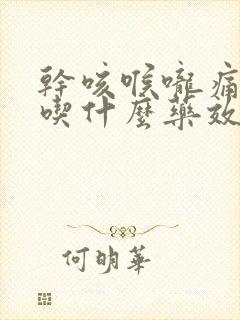 幹咳喉嚨痛
喫什麼藥效
何明華